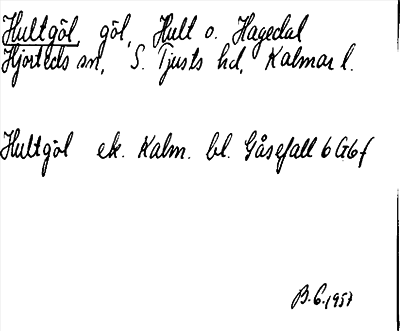 Hultgöl, göl, Hult o. Hagedal
Hjorteds sn, S. Tjusts hd, Kalmar l.
Hultgöl ek. Kalm. bl. Gåsefall 6G6f
B.G. 1957